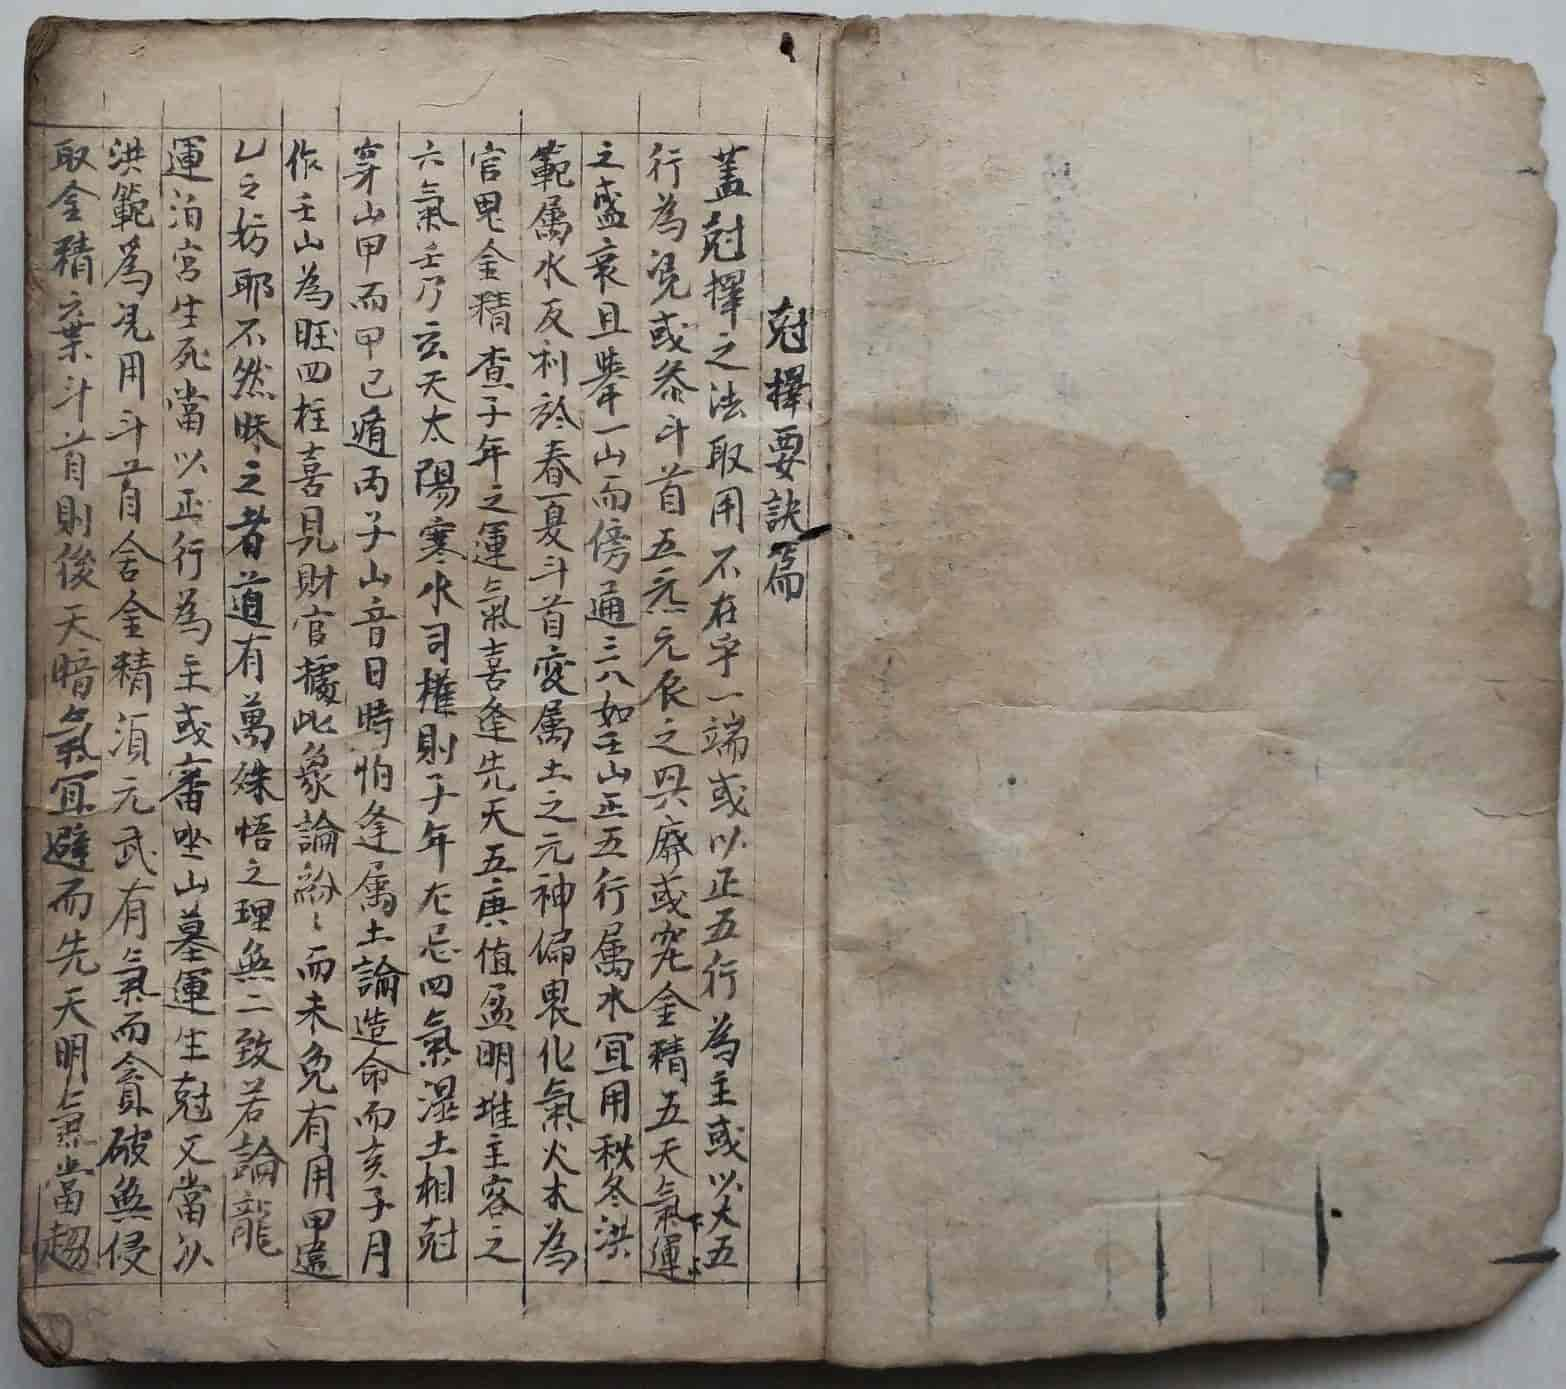 尅擇要訣篇
蓋尅擇之法取用不在乎一端或以正五行為主或以大五
行為凭或叅斗首五炁元辰之興廢或究金精五天氣運
之盛衰且舉一山而傍通三八如壬山正五行属水宜用秋冬洪
範属水反利於春夏斗首変属土之元神偏畏化氣火木為
官鬼金精查子年之運氣喜逢先天五庚值孟明堆主客之
六氣壬乃玄天太陽寒水司權則子年尤忌四氣湿土相尅
穿山甲而甲己遁丙子山音日時怕逢属土論造命而亥子月
作壬山為旺四柱喜見財官據此象論紛〻而未免有用甲違
乙之妨耶不然昧之者道有萬殊悟之理無二致若論龍
運泊宮生死當以正行為主或審坐山墓運生尅又當以
洪範為凭用斗首舍金精湏元武有氣而貪破無侵
取金精棄斗首則後天暗氣宜避而先天明氣當趨